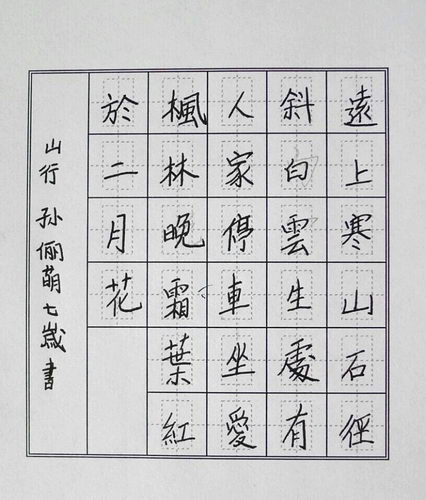 遠上寒山石徑
斜白雲生處有
人家停車坐愛
楓林晚霜葉紅
於二月花
山行 孙俪萌七歲書